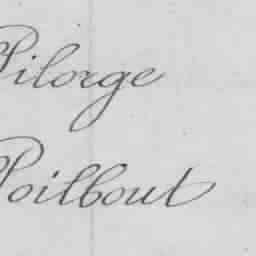 Pilorge
Poilbout